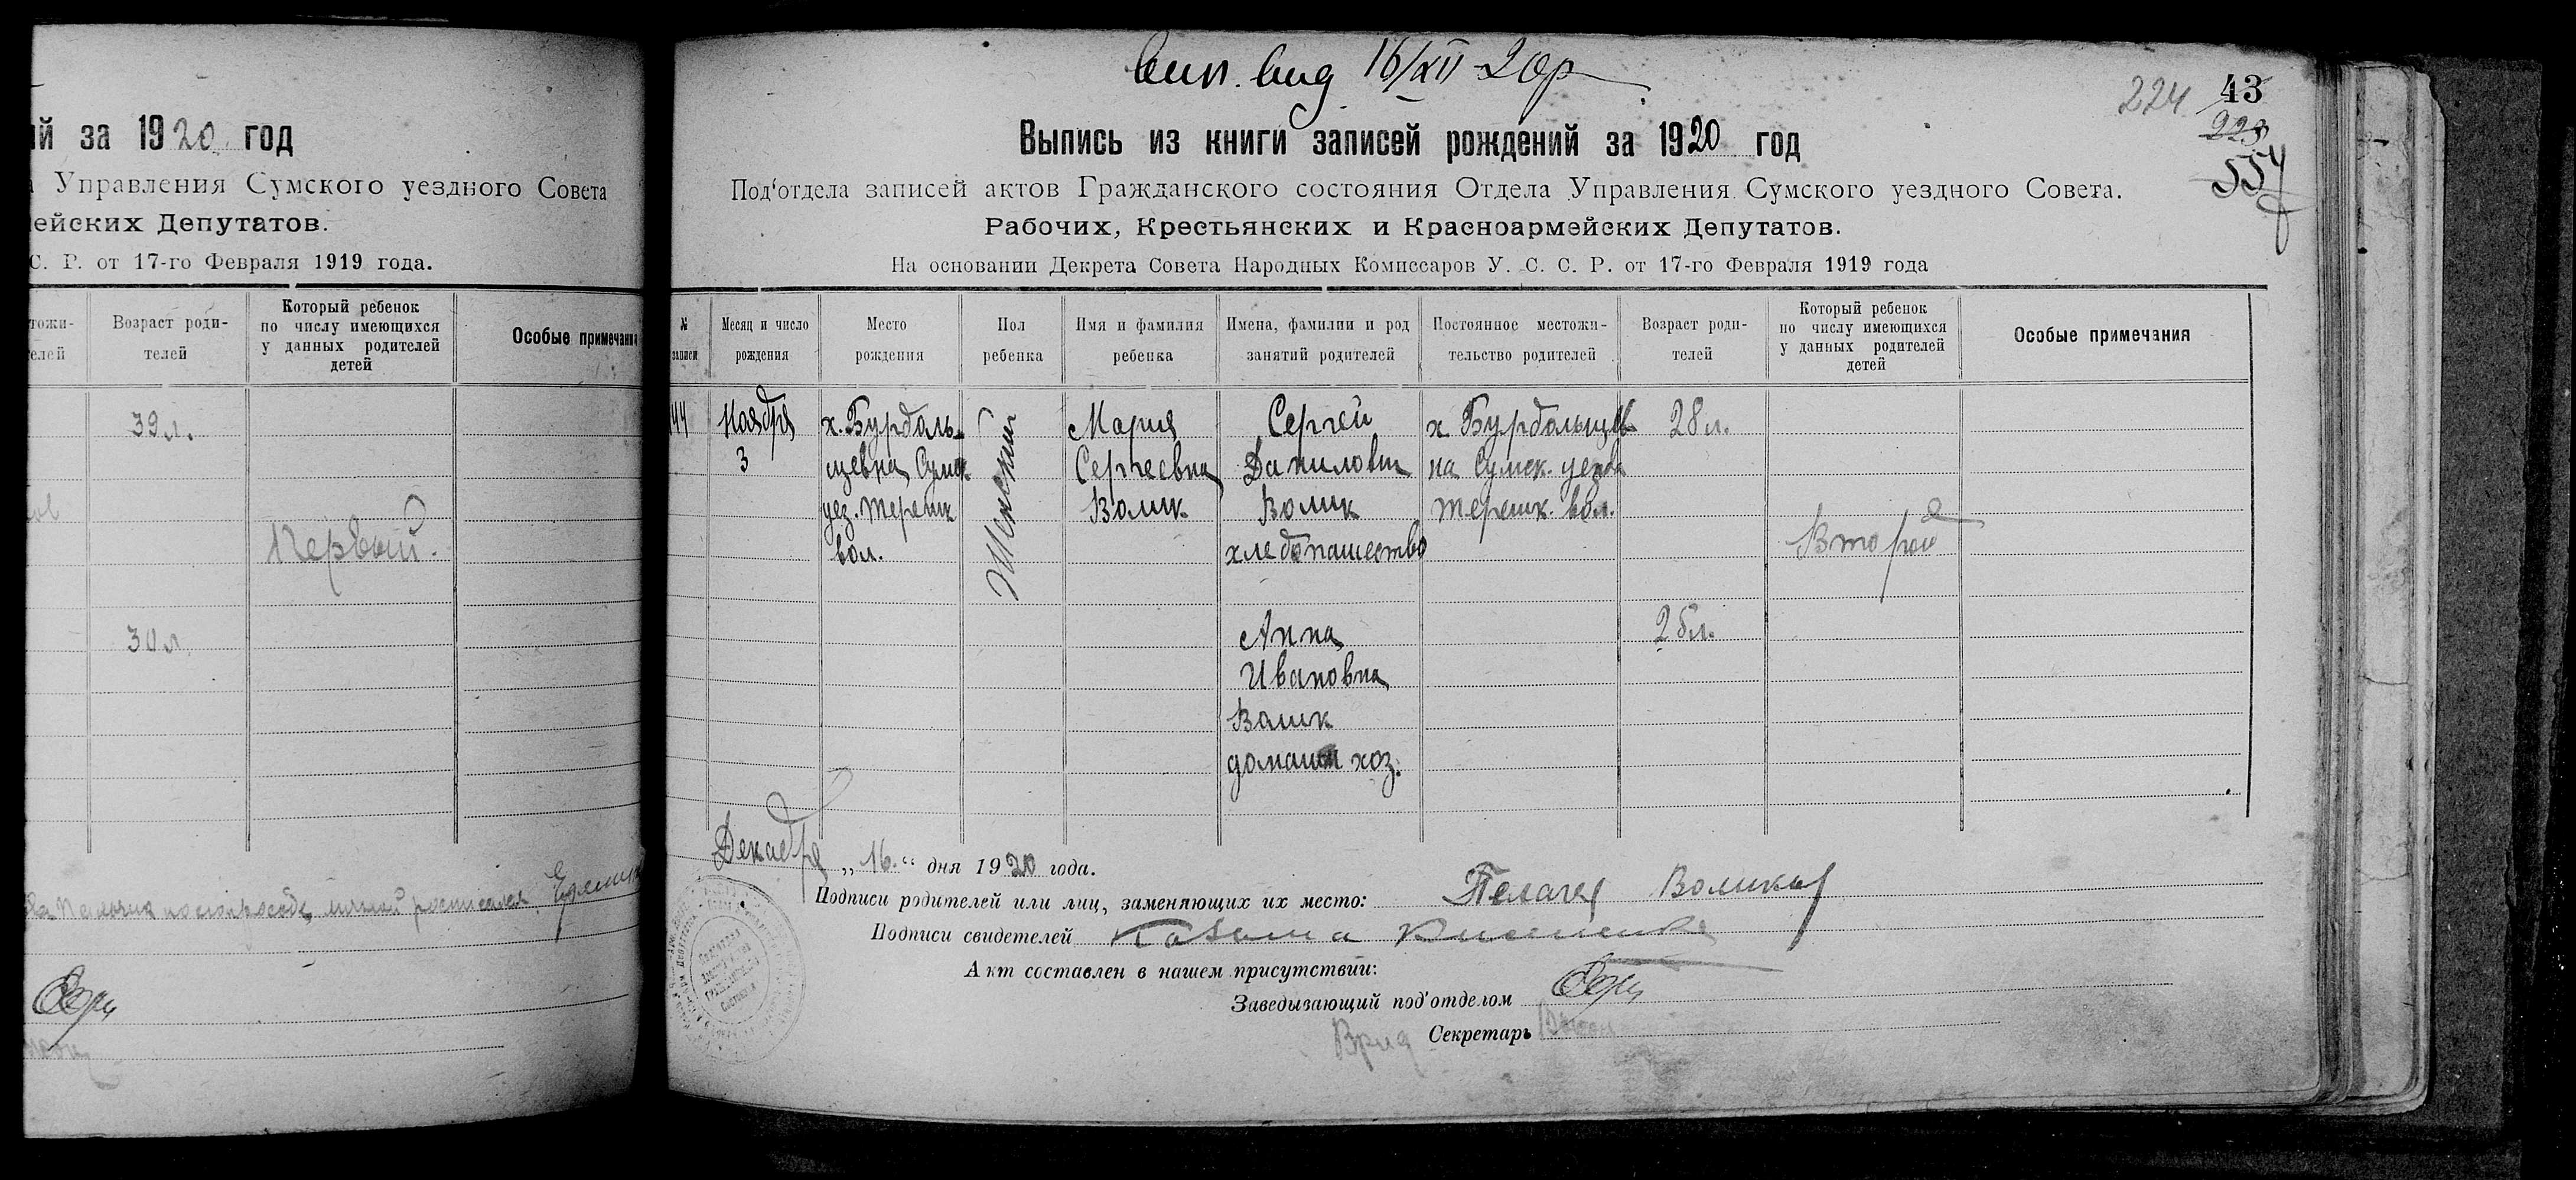 ий за 1920 год
Управления Сумского уездного Совета
ейских Депутатов.
С. Р. от 17-го Февраля 1919 года.
Возраст роди-
телей
Который ребенок
по числу имеющихся
у данных родителей
детей
Особые примечания
39 л.
Первый.
30 л.
вид 16/XII-20р
224
43
223
557
Выпись из книги записей рождений за 1920 год
Под'отдела записей актов Гражданского состояния Отдела Управления Сумского уездного Совета.
Рабочих, Крестьянских и Красноармейских Депутатов.
На основании Декрета Совета Народных Комиссаров У. С. С. Р. от 17-го Февраля 1919 года
№
записи
Месяц и число
рождения
Место
рождения
Пол
ребенка
Имя и фамилия
ребенка
Имена, фамилии и род
занятий родителей
Постоянное местожи-
тельство родителей
Возраст роди-
телей
Который ребенок
по числу имеющихся
у данных родителей
детей
Особые примечания
44
Ноября
3
х. Бурдаль-
цевка Сумск
уез. Терешк
вол.
Женский
Мария
Сергеевна
Волик
Сергей
Данилович
Волик
хлебопашество
Анна
Ивановна
Волик
домашн хоз.
х Бурдальцев
ка Сумск. уезда
Терешк. вол.
28 л.
Второй
Декабря „16.“ дня 1920 года.
Подписи родителей или лиц, заменяющих их место: Пелагея
Подписи свидетелей
Акт составлен в нашем присутствии:
Заведывающий под'отделом
Врид Секретарь